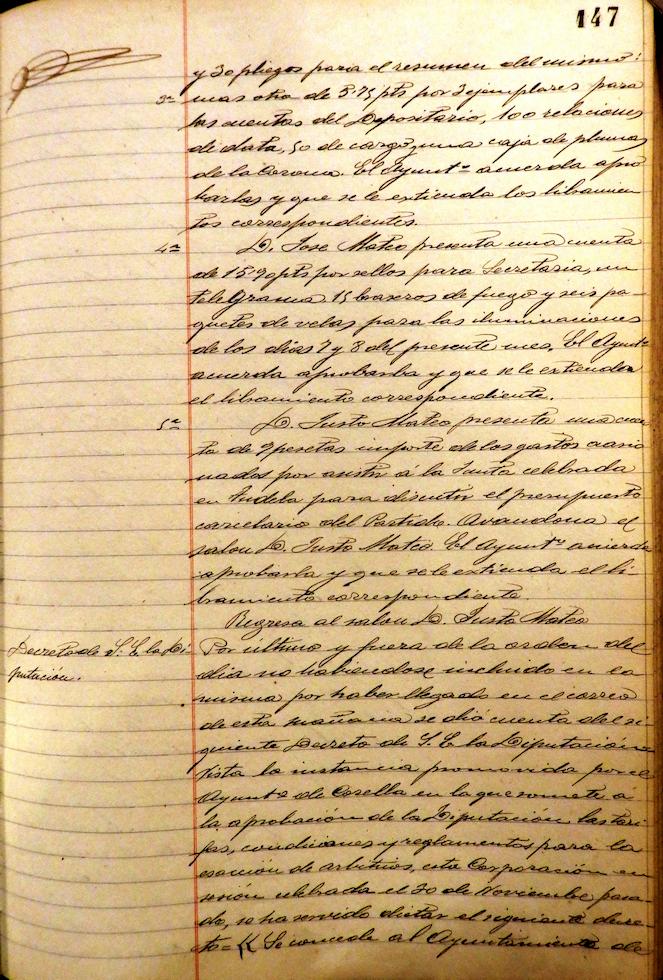 147
y 30 pliegos para el resumen del mismo:
3ª mas otra de 5.75 pts por 3 ejemplares para
las cuentas del Depositario, 100 relaciones
de data, 50 de cargo, una caja de plumas
de la Corona. El Ayuntº acuerda apro
barlas y que se le extienda los libramien
tos correspondientes.
4ª D. Jose Mateo presenta una cuenta
de 15.90 pts, por sellos para Secretaria, un
telegrama 15 braseros de fuego y seis pa-
quetes de velas para las iluminaciones
de los dias 7 y 8 del presente mes. El Ayuntº
acuerda aprobarla y que se le extienda
el libramiento correspondiente.
5ª D. Justo Mateo presenta una cuen
ta de 9 pesetas importe de los gastos ocasio
nados por asistir á la Junta celebrada
en Tudela para discutir el presupuesto
carcelario del Partido. Avandona el
salon D. Justo Mateo. El Ayuntº acuerda
aprobarla y que se le extienda el li-
bramiento correspondiente
Regresa al salon D. Justo Mateo
Decreto de S. E. la Di-
putación.
Por último y fuera de la orden del
dia no habiendose incluido en la
misma por haber llegado en el correo
de esta mañana se dió cuenta del si-
guiente Decreto de S. E. la Diputación
Vista la instancia promovida por el
Ayuntº de Corella en la que somete á
la aprobación de la Diputación las tari-
fas, condiciones y reglamentos para la
esacción de arbitrios, esta Corporación en
sesión celebrada el 30 de Noviembre pasa-
do, se ha servido dictar el siguiente decre-
to= Se concede al Ayuntamiento de